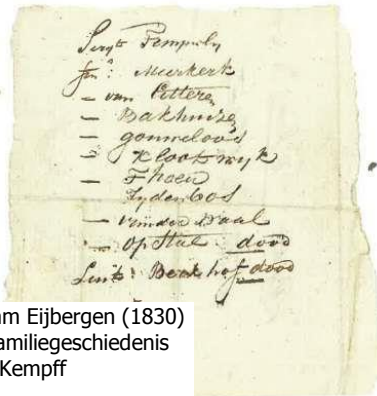 Serg^t Tempel
fus^r: Meerkerk
— van Etteren
— Bakhuizen
— gomeloos
— Klootwyk
— Thoen
Zydenbos
— van der Daal
— Op Stal dood
Luit: Berkhof dood
am Eijbergen (1830)
amiliegeschiedenis
Kempff